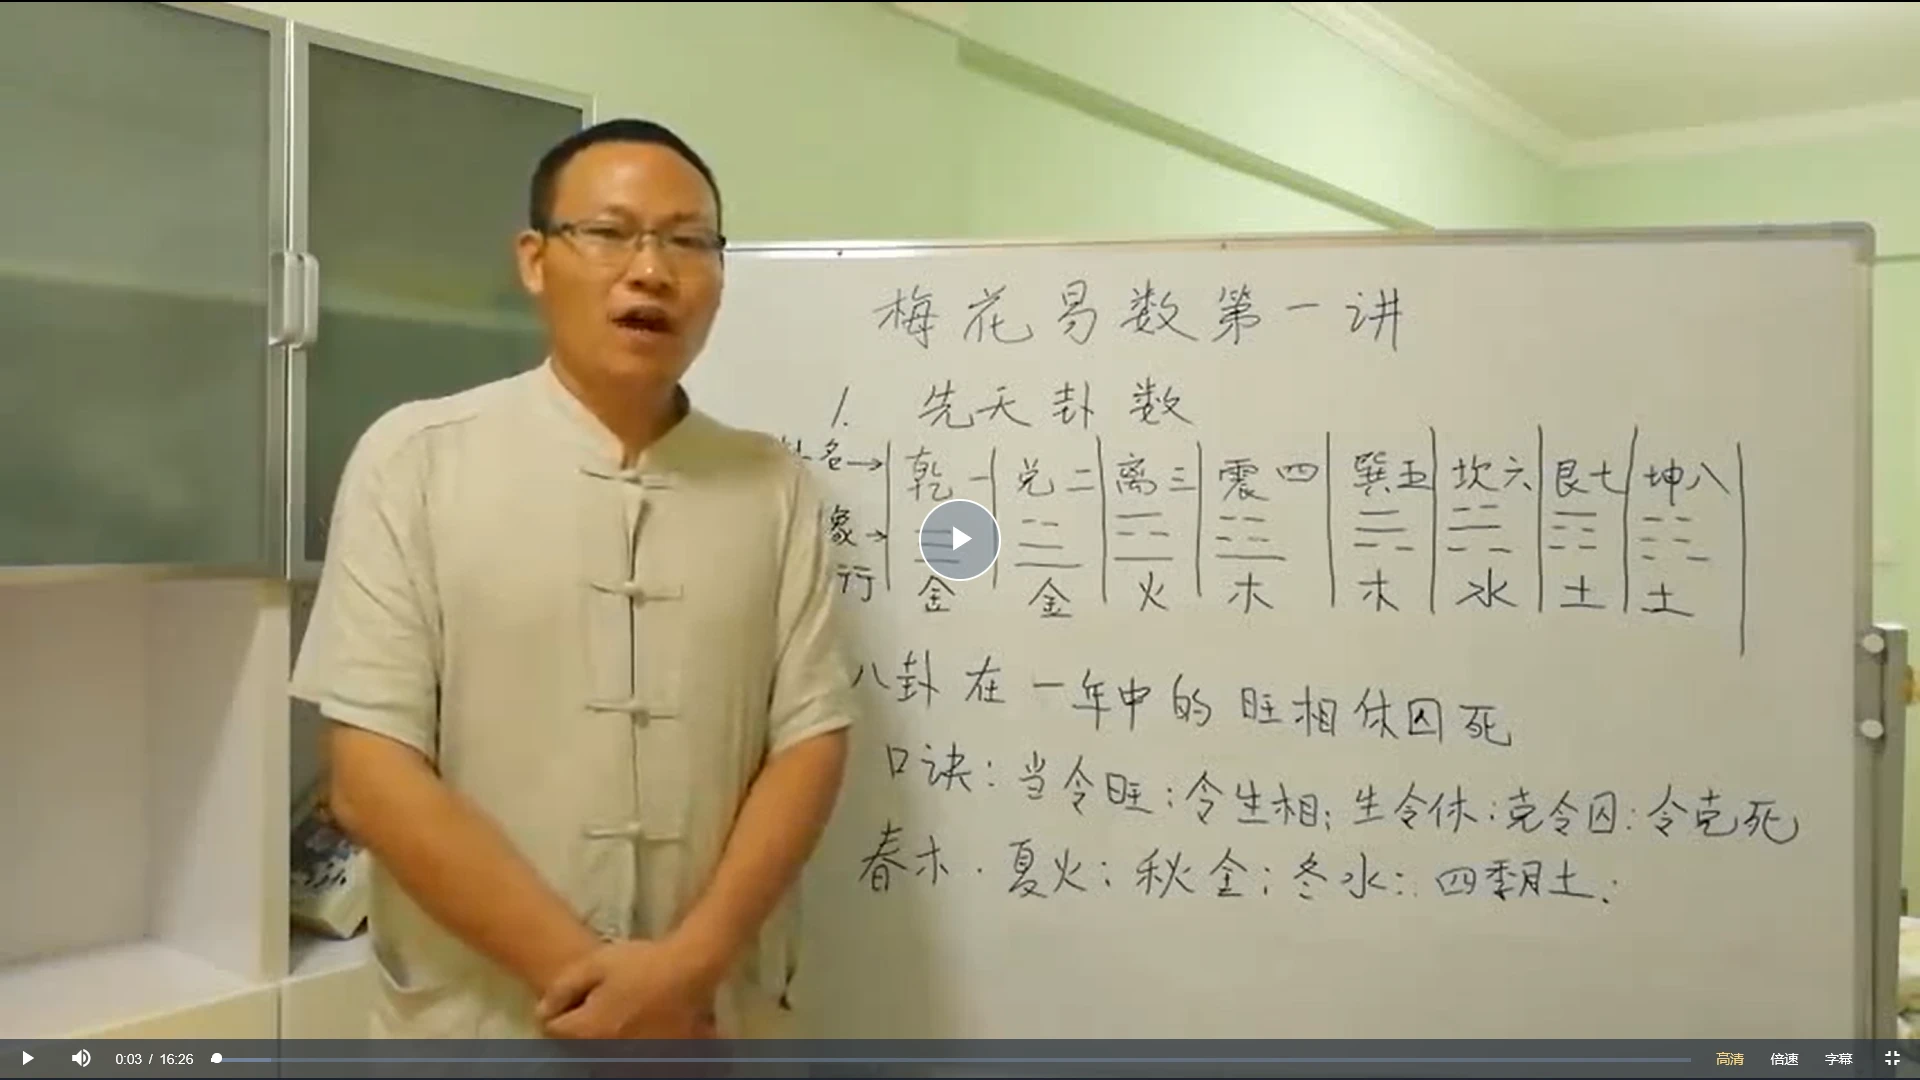 梅花易数第一讲
1. 先天卦数
名→ 乾一 兑二 离三 震四 巽五 坎六 艮七 坤八
象→
行 金 金 火 木 木 水 土 土
八卦在一年中的旺相休囚死
口诀：当令旺；令生相；生令休；克令囚：令克死
春木．夏火；秋金；冬水：四季月土；
0:03 / 16:26 高清 倍速 字幕